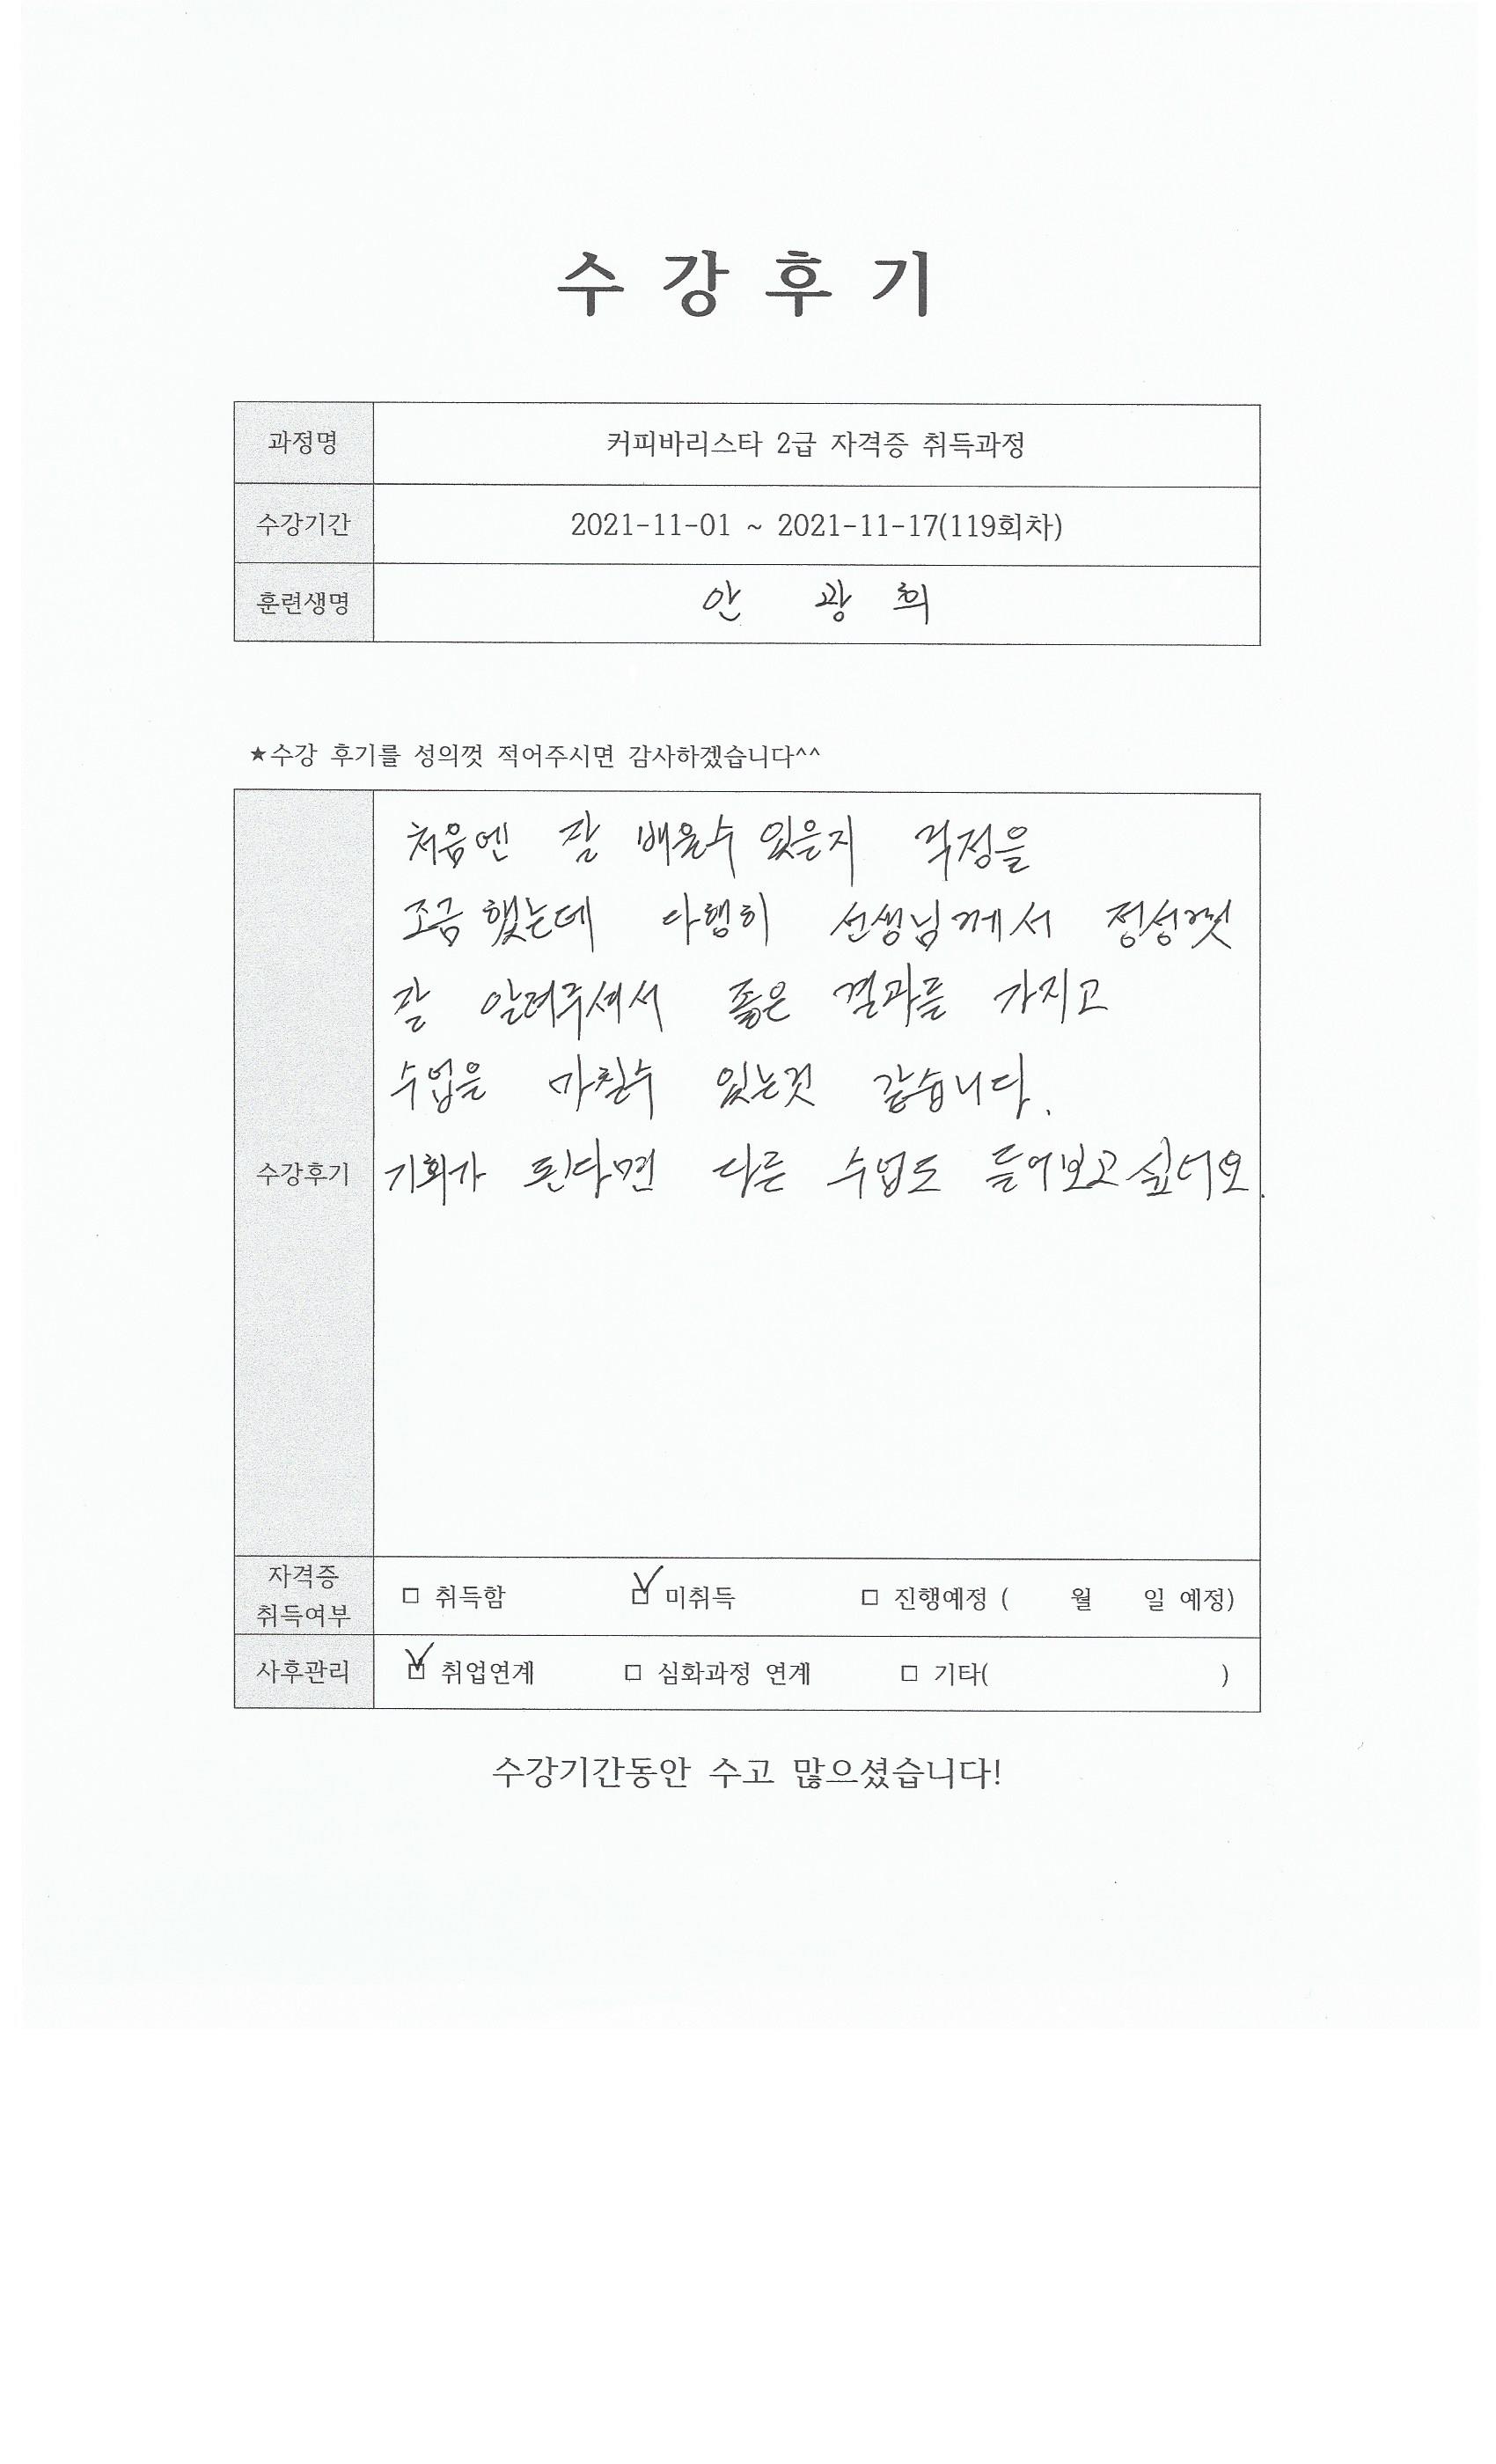 수 강 후 기
과정명 커피바리스타 2급 자격증 취득과정
수강기간 2021-11-01 ~ 2021-11-17(119회차)
훈련생명 안 광 희
★수강 후기를 성의껏 적어주시면 감사하겠습니다^^
처음엔 잘 배울수 있을지 걱정을
조금 했는데 다행히 선생님께서 정성껏
잘 알려주셔서 좋은 결과를 가지고
수업을 마칠수 있는것 같습니다.
수강후기 기회가 된다면 다른 수업도 들어보고 싶어요.
자격증
취득여부 □ 취득함 ☑ 미취득 □ 진행예정 ( 월 일 예정)
사후관리 ☑ 취업연계 □ 심화과정 연계 □ 기타( )
수강기간동안 수고 많으셨습니다!